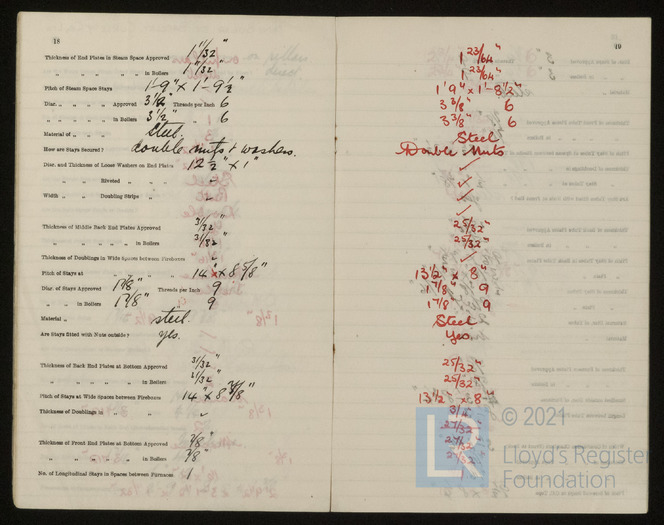 18
Thickness of End Plates in Steam Space Approved 1 11/32"
" " " " " in Boilers 1 11/32"
Pitch of Steam Space Stays 1'-9" x 1'-9½"
Diar. " " " Approved Threads per Inch 6
" " " " in Boilers 3½" " 6
Material of " " Steel.
How are Stays Secured? double nuts & washers.
Diar. and Thickness of Loose Washers on End Plates 12½" x 1"
" " Riveted " "
Width " " Doubling Strips "
Thickness of Middle Back End Plates Approved
" " " " in Boilers
Thickness of Doublings in Wide Spaces between Fireboxes
Pitch of Stays at " " " " 14" x 8⅝"
Diar. of Stays Approved 1⅞" Threads per Inch 9
" " in Boilers 1⅞" " 9
Material " Steel.
Are Stays fitted with Nuts outside? Yes.
Thickness of Back End Plates at Bottom Approved
" " " " in Boilers
Pitch of Stays at Wide Spaces between Fireboxes 14" x
Thickness of Doublings in " "
Thickness of Front End Plates at Bottom Approved ⅞"
" " " " in Boilers ⅞"
No. of Longitudinal Stays in Spaces between Furnaces 1
49
1 23/64"
1 23/64"
1'9" x 1'-8½"
3⅜" 6
3⅜" 6
Steel
Double Nuts
✓
✓
✓
25/32"
25/32"
✓
13½" x 8"
1⅞" 9
1⅞" 9
Steel
Yes.
25/32"
25/32"
13½" x 8"
1
LR
© 2021
Lloyd's Register
Foundation